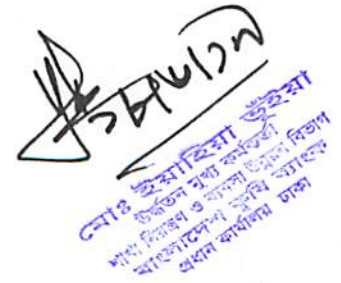 মোঃ ইয়াহিয়া ভূঁইয়া
উর্দ্ধতন মুখ্য কর্মকর্তা
শাখা নিয়ন্ত্রণ ও ব্যবসা উন্নয়ন বিভাগ
বাংলাদেশ কৃষি ব্যাংক
প্রধান কার্যালয় ঢাকা